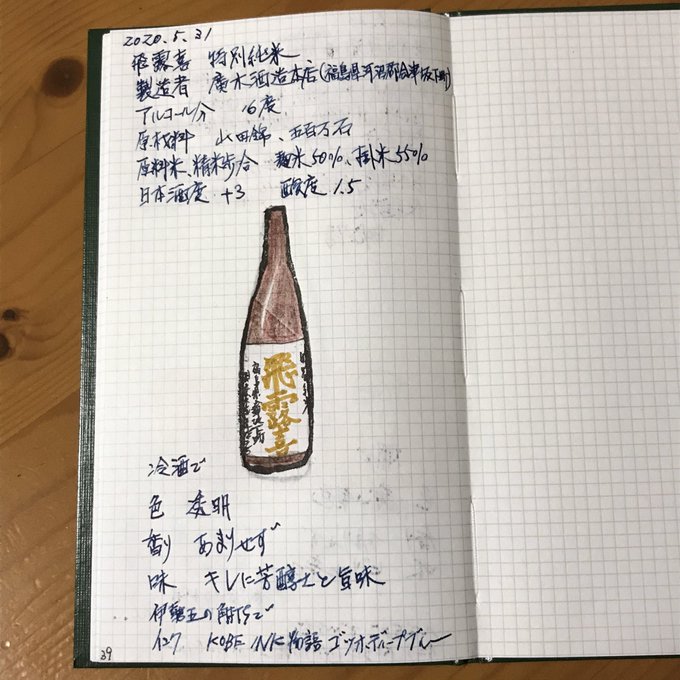 2020.5.31
飛露喜 特別純米
製造者 廣木酒造本店(福島県河沼郡会津坂下町)
アルコール分 16度
原材料 山田錦、五百万石
原料米、精米歩合 麹米50%、掛米55%
日本酒度 +3 酸度 1.5
飛露喜
冷酒で
色 透明
香り あまりせず
味 キレに芳醇さと旨味
伊勢五の階段で
インク KOBE INK物語 ゴッホディープブルー
39